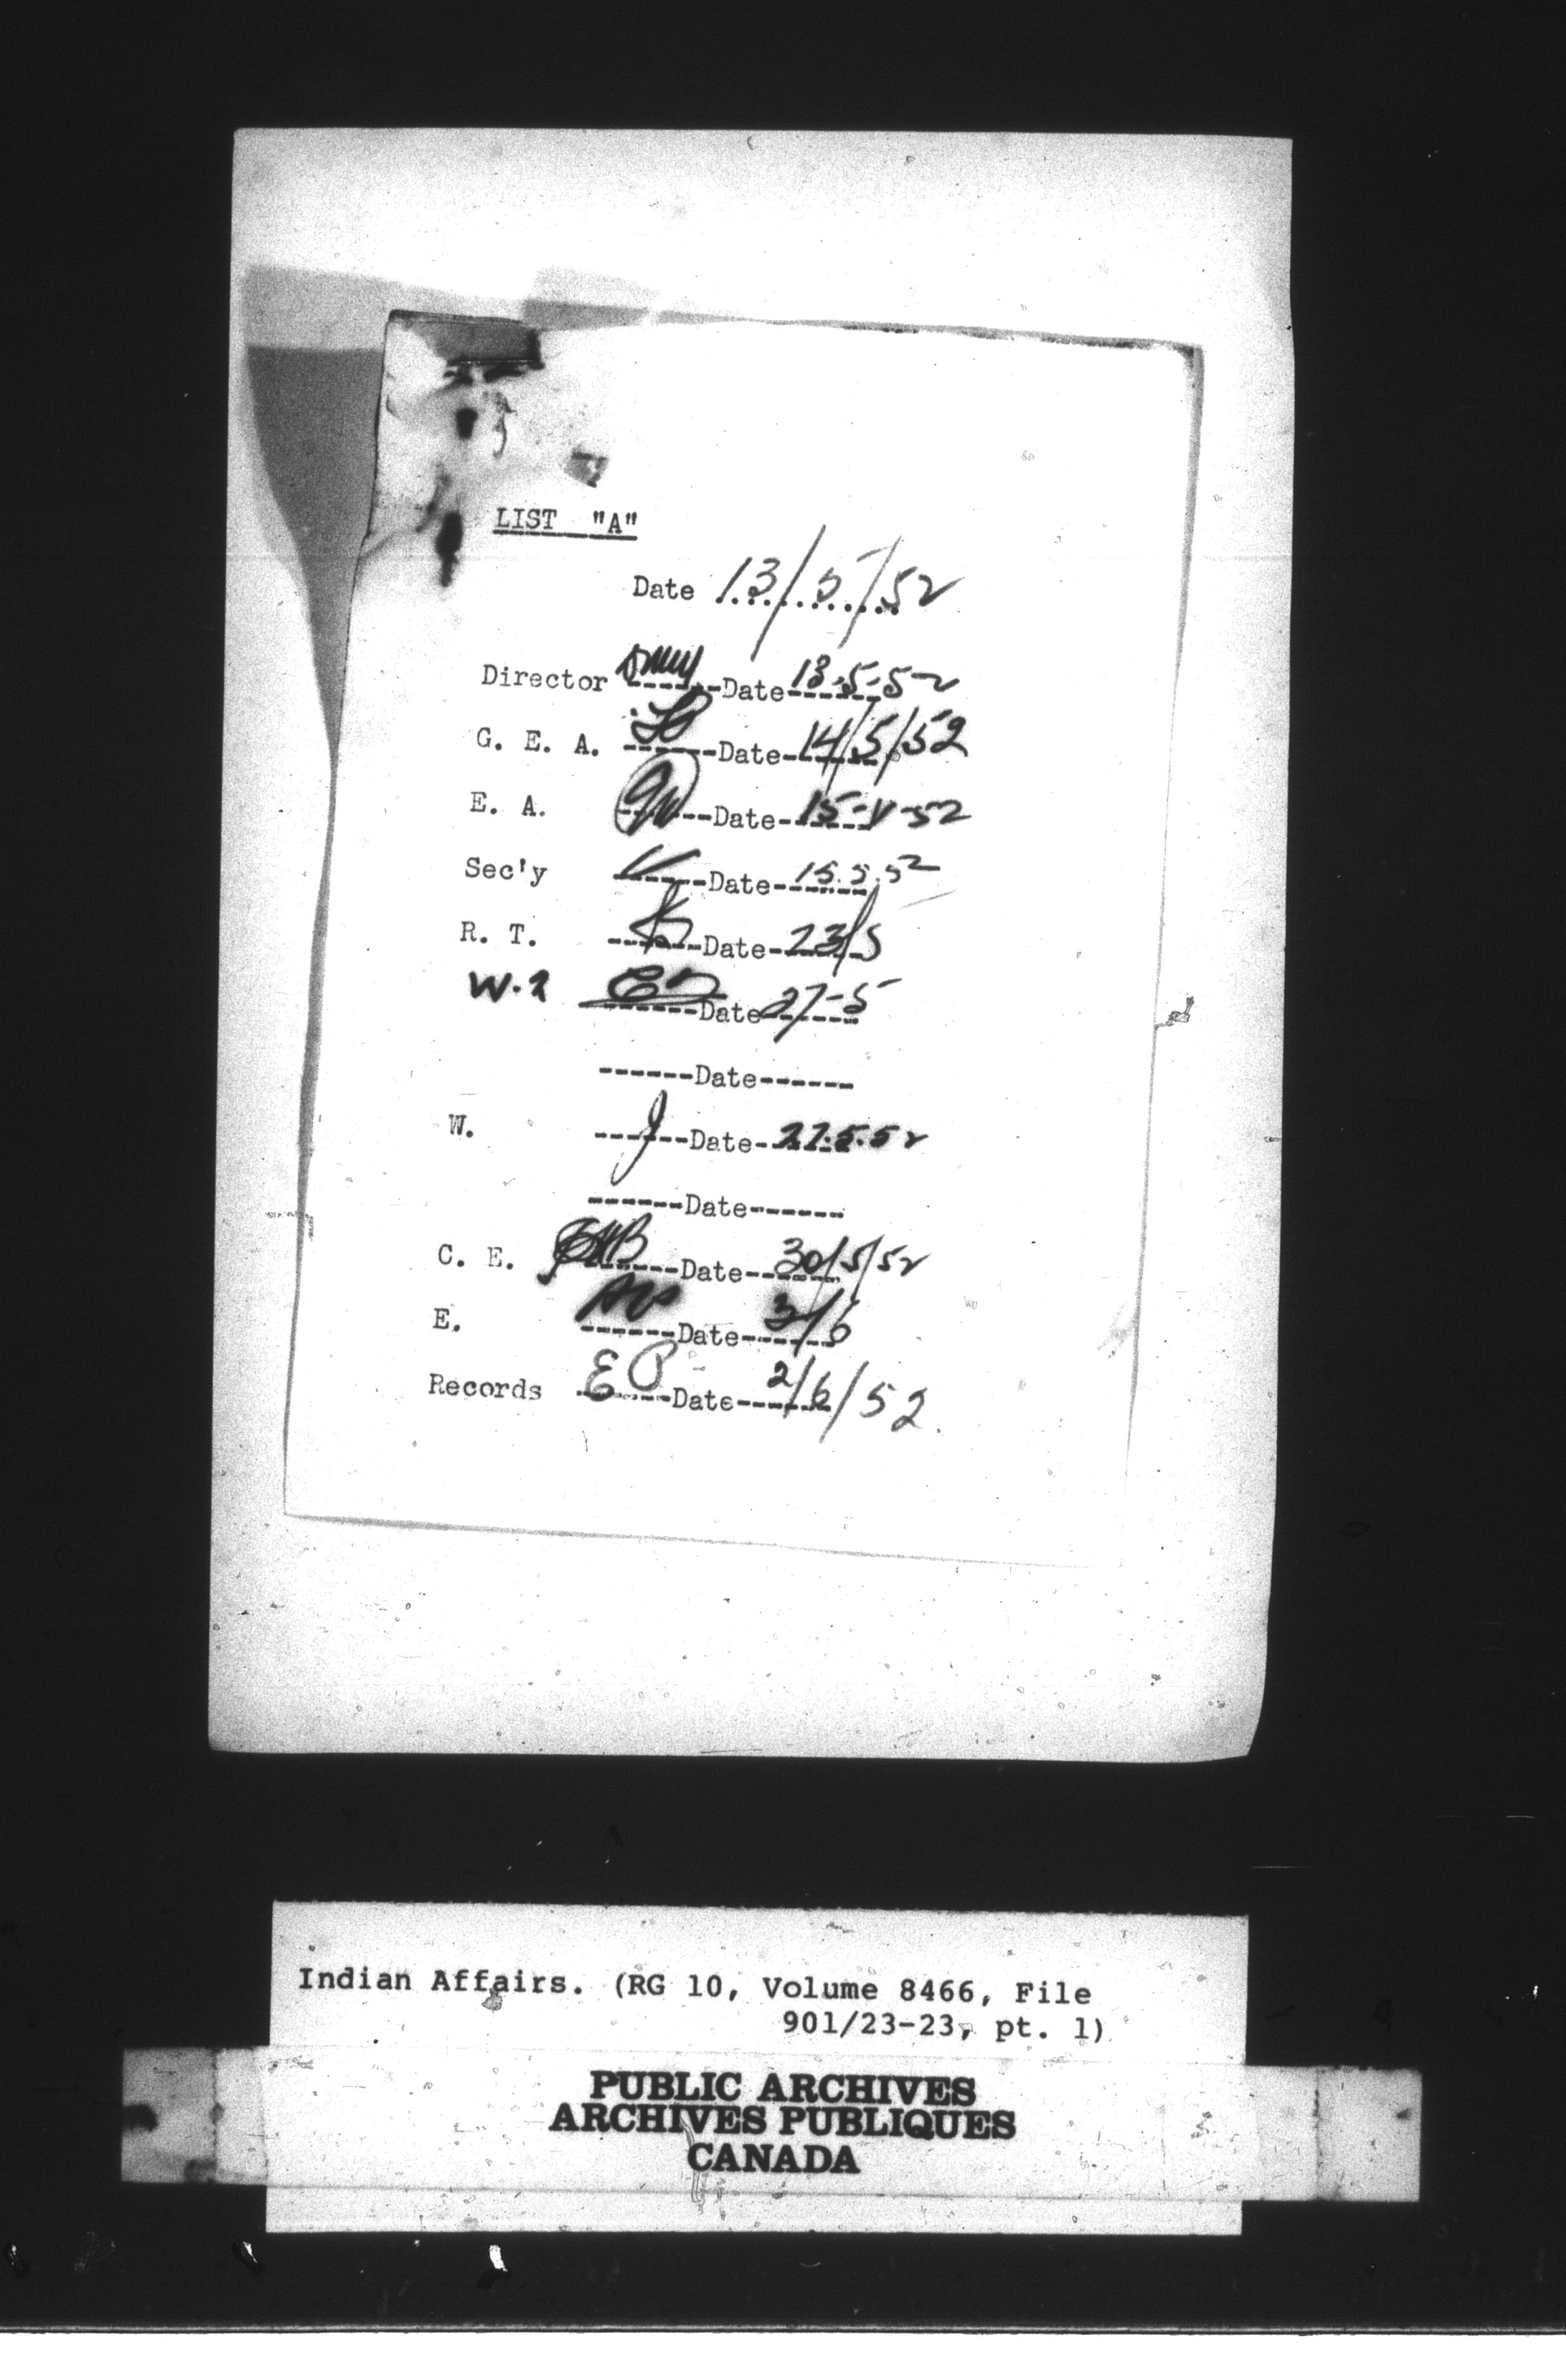 LIST "A"
Date 13/5/52
Director ------Date------ 13.5.52
G. E. A. ------Date------ 14/5/52
E. A. ------Date------ 15-V-52
Sec'y ------Date------ 15.5.52
R. T. ------Date------ 23/5
W.2 ------Date------ 27-5
------Date------
W. ------Date------ 27.5.52
------Date------
C. E. ------Date------ 30/5/52
E. ------Date------ 3/6
Records EP ------Date------ 2/6/52.
Indian Affairs. (RG 10, Volume 8466, File
901/23-23, pt. 1)
PUBLIC ARCHIVES
ARCHIVES PUBLIQUES
CANADA